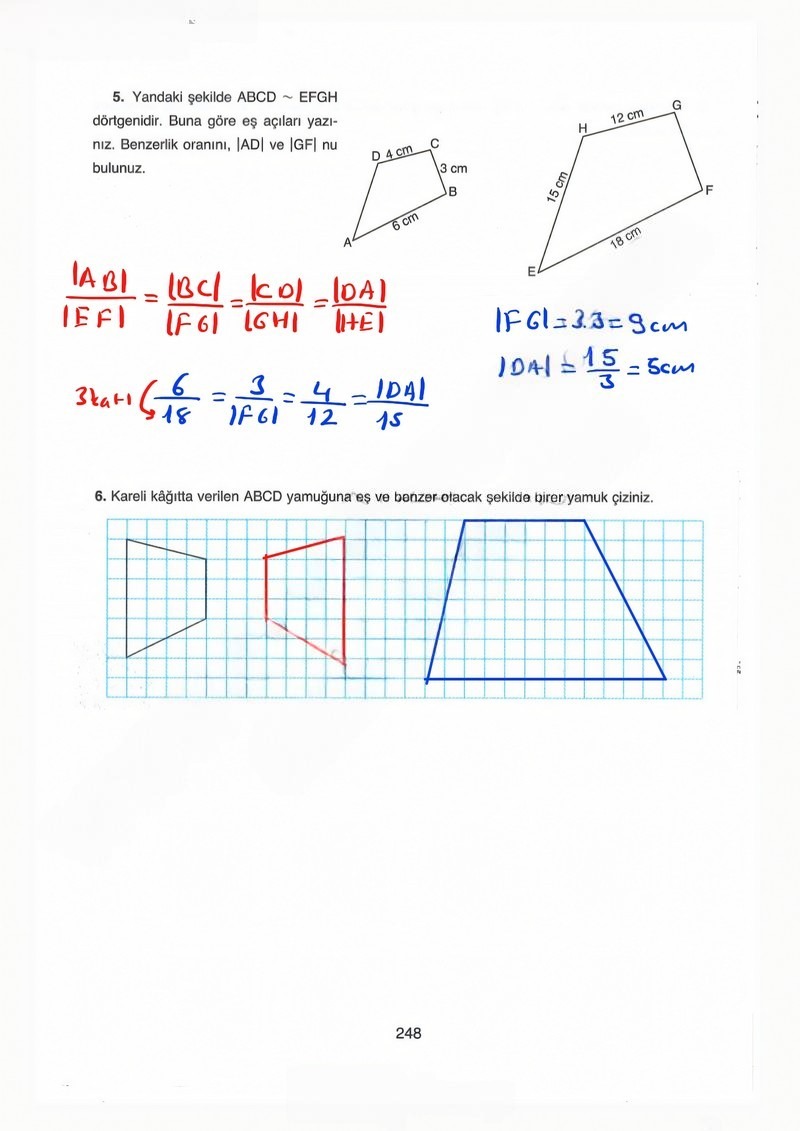 5. Yandaki şekilde ABCD ~ EFGH
dörtgenidir. Buna göre eş açıları yazı-
nız. Benzerlik oranını, |AD| ve |GF| nu
bulunuz.
D 4 cm C
3 cm
B
6 cm
A
G
12 cm
H
15 cm
F
18 cm
E
|AB|/|EF| = |BC|/|FG| = |CD|/|GH| = |DA|/|HE|
|FG| = 3.3 = 9 cm
|DA| = 15/3 = 5 cm
3 katı 6/18 = 3/|FG| = 4/12 = |DA|/15
6. Kareli kâğıtta verilen ABCD yamuğuna eş ve benzer olacak şekilde birer yamuk çiziniz.
248